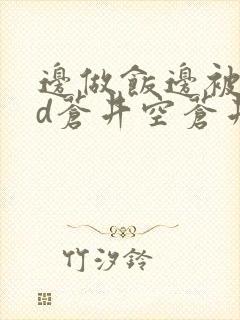 邊做飯邊被
d蒼井空蒼井
竹汐鈴